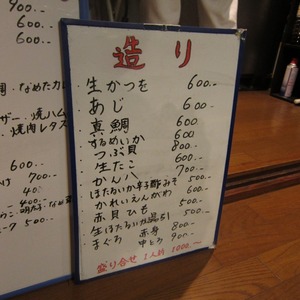 900.-
600.-
600
造り
生かつを 600.-
あじ 600.-
真鯛 600
するめいか 600
つぶ貝 800.-
生たこ 600.-
かん八 700.-
ほたるいか辛子酢みそ 500.-
かれいえんがわ 600.-
赤貝ひも 500.-
生ほたるいか 500.-
まぐろ 赤身 800.-
中とろ 900.-
盛り合せ 1人前 1000.-〜
なめたカレ
ザー・焼ハム
・焼肉レタス
600.-
700.-
400
400.-
500.-